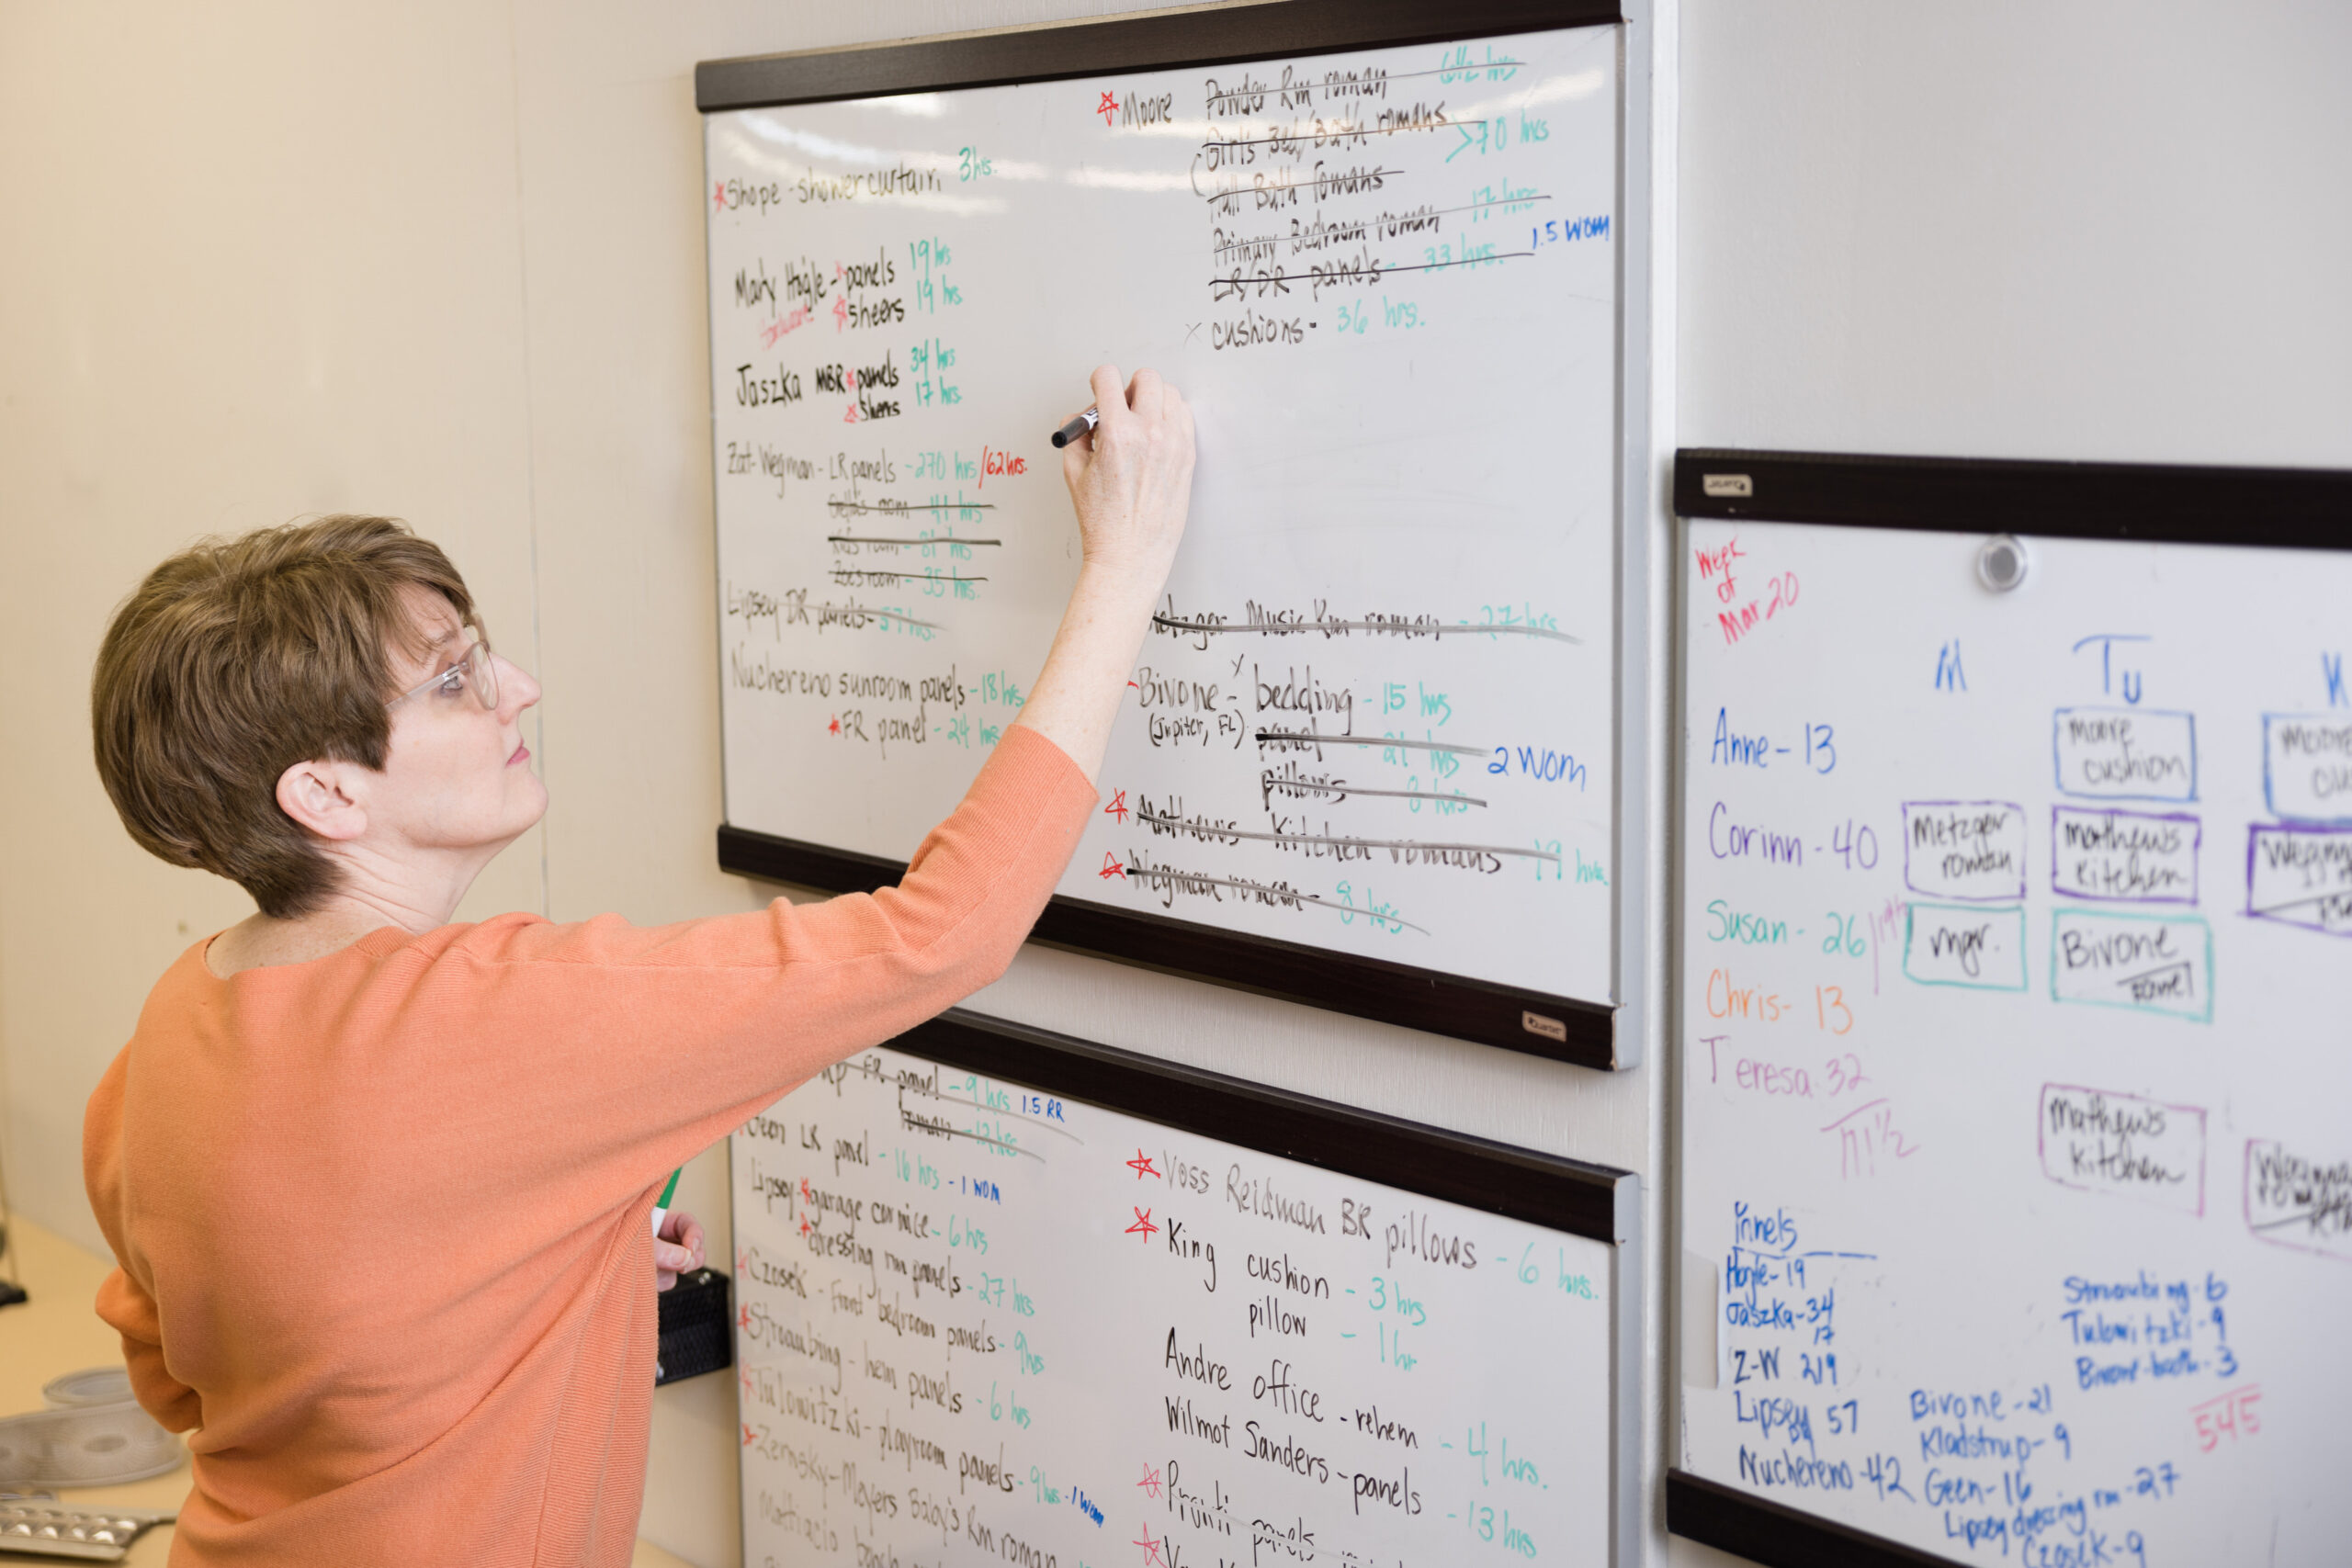 Shope - shower curtain 3 hrs.
Mary Hogle - panels 19 hrs
sheers 19 hrs.
Jaszka MBR panels 34 hrs
sheers 17 hrs.
Zat-Wegman - LR panels - 270 hrs /62 hrs.
room 41 hrs
room - 81 hrs
Zoe's room - 35 hrs.
Lipsey DR panels - 57 hrs.
Nuchereno sunroom panels - 18 hrs
FR panel - 24 hrs
Moore Powder Rm roman 6 1/2 hrs
Girls Bed/Bath romans >70 hrs
Hall Bath romans
Primary Bedroom roman 17 hrs
LR/DR panels - 33 hrs. 1.5 WOM
x cushions - 36 hrs.
Music Rm roman - 27 hrs
Bivone - bedding - 15 hrs
(Jupiter, FL) panel - 21 hrs 2 WOM
pillows 8 hrs
Mathews Kitchen romans 19 hrs.
Wegman roman - 8 hrs
Quartet
FR panel - 9 hrs 1.5 RR
roman - 12 hrs
Geen LR panel - 16 hrs - 1 WOM
Lipsey - garage cornice - 6 hrs
dressing rm panels - 27 hrs
Czosek - Front bedroom panels - 9 hrs
Straubing - hem panels - 6 hrs
Tulowitzki - playroom panels - 9 hrs - 1 WOM
Zernsky-Meyers Baby's Rm roman
Voss Reidman BR pillows - 6 hrs.
King cushion - 3 hrs
pillow - 1 hr
Andre office - rehem - 4 hrs.
Wilmot Sanders - panels - 13 hrs
panels
Week
of
Mar 20
M Tu
Anne - 13 Moore cushion Moore
Corinn - 40 Metzger roman Mathews Kitchen
Susan - 26 mgr. Bivone panel
Chris - 13
Teresa 32 Mathews Kitchen
111 1/2
Panels
Hogle - 19
Jaszka - 34
17
Z-W 219
Lipsey 57
Nuchereno - 42
Bivone - 21
Kladstrup - 9
Geen - 16
Lipsey dressing rm - 27
Czosek - 9
Straubing - 6
Tulowitzki - 9
Bivone - 3
545